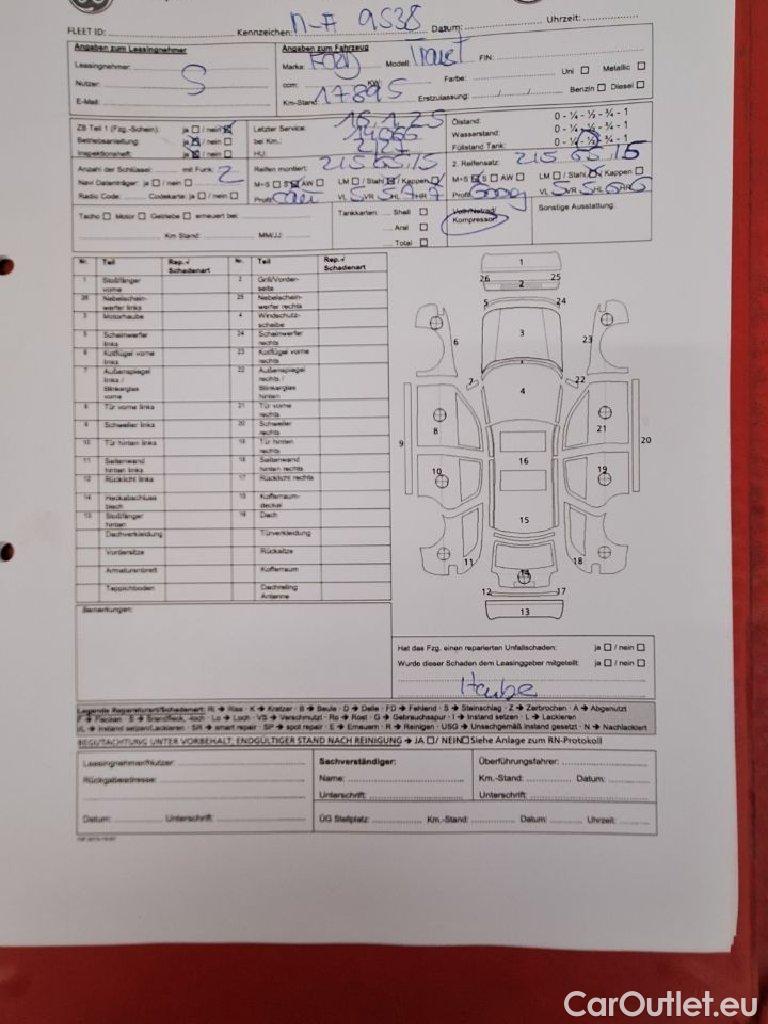 FLEET ID: Kennzeichen: M-A 9538 Datum: Uhrzeit:
Angaben zum Leasingnehmer Angaben zum Fahrzeug
Leasingnehmer: Marke: Ford Modell: Transit FIN:
Nutzer: S ccm: Farbe: Uni ☐ Metallic ☐
E-Mail: Km-Stand: 17895 Erstzulassung: Benzin ☐ Diesel ☐
ZB Teil 1 (Fzg.-Schein): ja ☐ / nein ☒ Letzter Service: 16.1.25 Ölstand: 0 - ¼ - ½ - ¾ - 1
Betriebsanleitung: ja ☒ / nein ☐ bei Km.: Wasserstand: 0 - ¼ - ½ - ¾ - 1
Inspektionsheft: ja ☒ / nein ☐ HU: Füllstand Tank: 0 - ¼ - ½ - ¾ - 1
Anzahl der Schlüssel: mit Funk: 2 Reifen montiert: 215 65 15 2. Reifensatz: 215 65 15
Navi Datenträger: ja ☐ / nein ☐ M+S ☐ S ☒ AW ☐ LM ☐ / Stahl ☒ / Kappen ☑ M+S ☒ S ☐ AW ☐ LM ☐ / Stahl ☒ / Kappen ☐
Radio Code: Codekarte: ja ☐ / nein ☐ Profil: VL 5 VR 5 HL 7 HR 7 Profil: VL 5 VR 5 HL 6 HR 6
Tacho ☐ Motor ☐ Getriebe ☐ erneuert bei: Tankkarten: Shell ☐ Kompressor Sonstige Ausstattung:
Aral ☐
Km Stand: MM/JJ: Total ☐
Nr. Teil Rep.-/ Schadenart Nr. Teil Rep.-/ Schadenart
1 Stoßfänger vorne 2 Grill/Vorderseite
26 Nebelscheinwerfer links 25 Nebelscheinwerfer rechts
3 Motorhaube 4 Windschutzscheibe
5 Scheinwerfer links 24 Scheinwerfer rechts
6 Kotflügel vorne links 23 Kotflügel vorne rechts
7 Außenspiegel links / Blinkerglas vorne 22 Außenspiegel rechts / Blinkerglas hinten
8 Tür vorne links 21 Tür vorne rechts
9 Schweller links 20 Schweller rechts
10 Tür hinten links 19 Tür hinten rechts
11 Seitenwand hinten links 18 Seitenwand hinten rechts
12 Rücklicht links 17 Rücklicht rechts
14 Heckabschlussblech 15 Kofferraumdeckel
13 Stoßfänger hinten 16 Dach
Dachverkleidung Türverkleidung
Vordersitze Rücksitze
Armaturenbrett Kofferraum
Teppichboden Dachreling Antenne
1
26 25
2
5 24
6 3 23
7 22
4
8 21
9 20
16
10 19
15
11 14 18
12 17
13
Bemerkungen:
Hat das Fzg. einen reparierten Unfallschaden: ja ☐ / nein ☐
Wurde dieser Schaden dem Leasinggeber mitgeteilt: ja ☐ / nein ☐
Haube
Legende Reparaturart/Schadenart: RI → Riss · K → Kratzer · B → Beule · D → Delle · FD → Fehlend · S → Steinschlag · Z → Zerbrochen · A → Abgenutzt
Lo → Loch · VS → Verschmutzt · Ro → Rost · G → Gebrauchsspur · I → Instand setzen · L → Lackieren
I/L → Instand setzen/Lackieren · SR → smart repair · SP → spot repair · E → Erneuern · R → Reinigen · USG → Unsachgemäß instand gesetzt · N → Nachlackiert
BEGUTACHTUNG UNTER VORBEHALT, ENDGÜLTIGER STAND NACH REINIGUNG → JA ☐ / NEIN ☐ Siehe Anlage zum RN-Protokoll
Leasingnehmer/Nutzer: Sachverständiger: Überführungsfahrer:
Rückgabeadresse: Name: Km.-Stand: Datum:
Unterschrift: Unterschrift:
Datum: Unterschrift: ÜG Stellplatz: Km.-Stand: Datum: Uhrzeit:
CarOutlet.eu